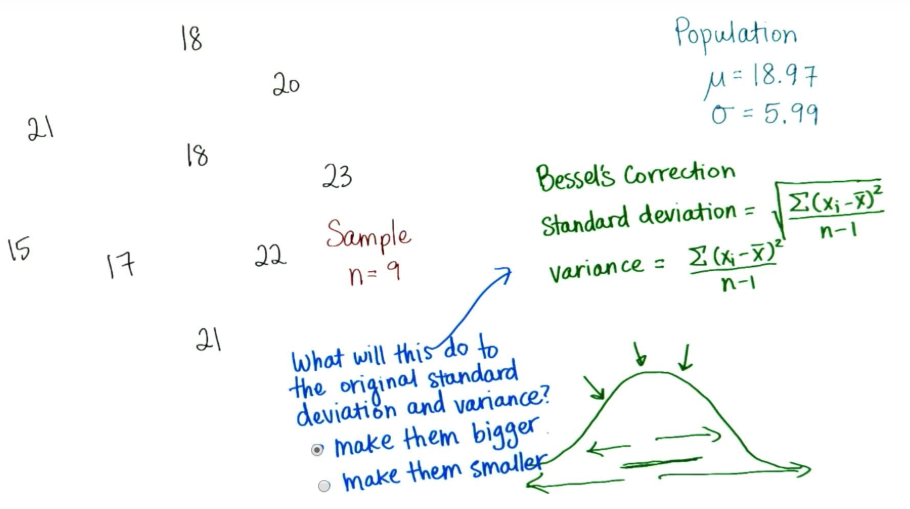 18
20
21
18
23
15
17
22
21
Sample
n = 9
Population
μ = 18.97
σ = 5.99
Bessel's Correction
Standard deviation = √Σ(xᵢ-x̄)²/n-1
variance = Σ(xᵢ-x̄)²/n-1
What will this do to
the original standard
deviation and variance?
make them bigger
make them smaller